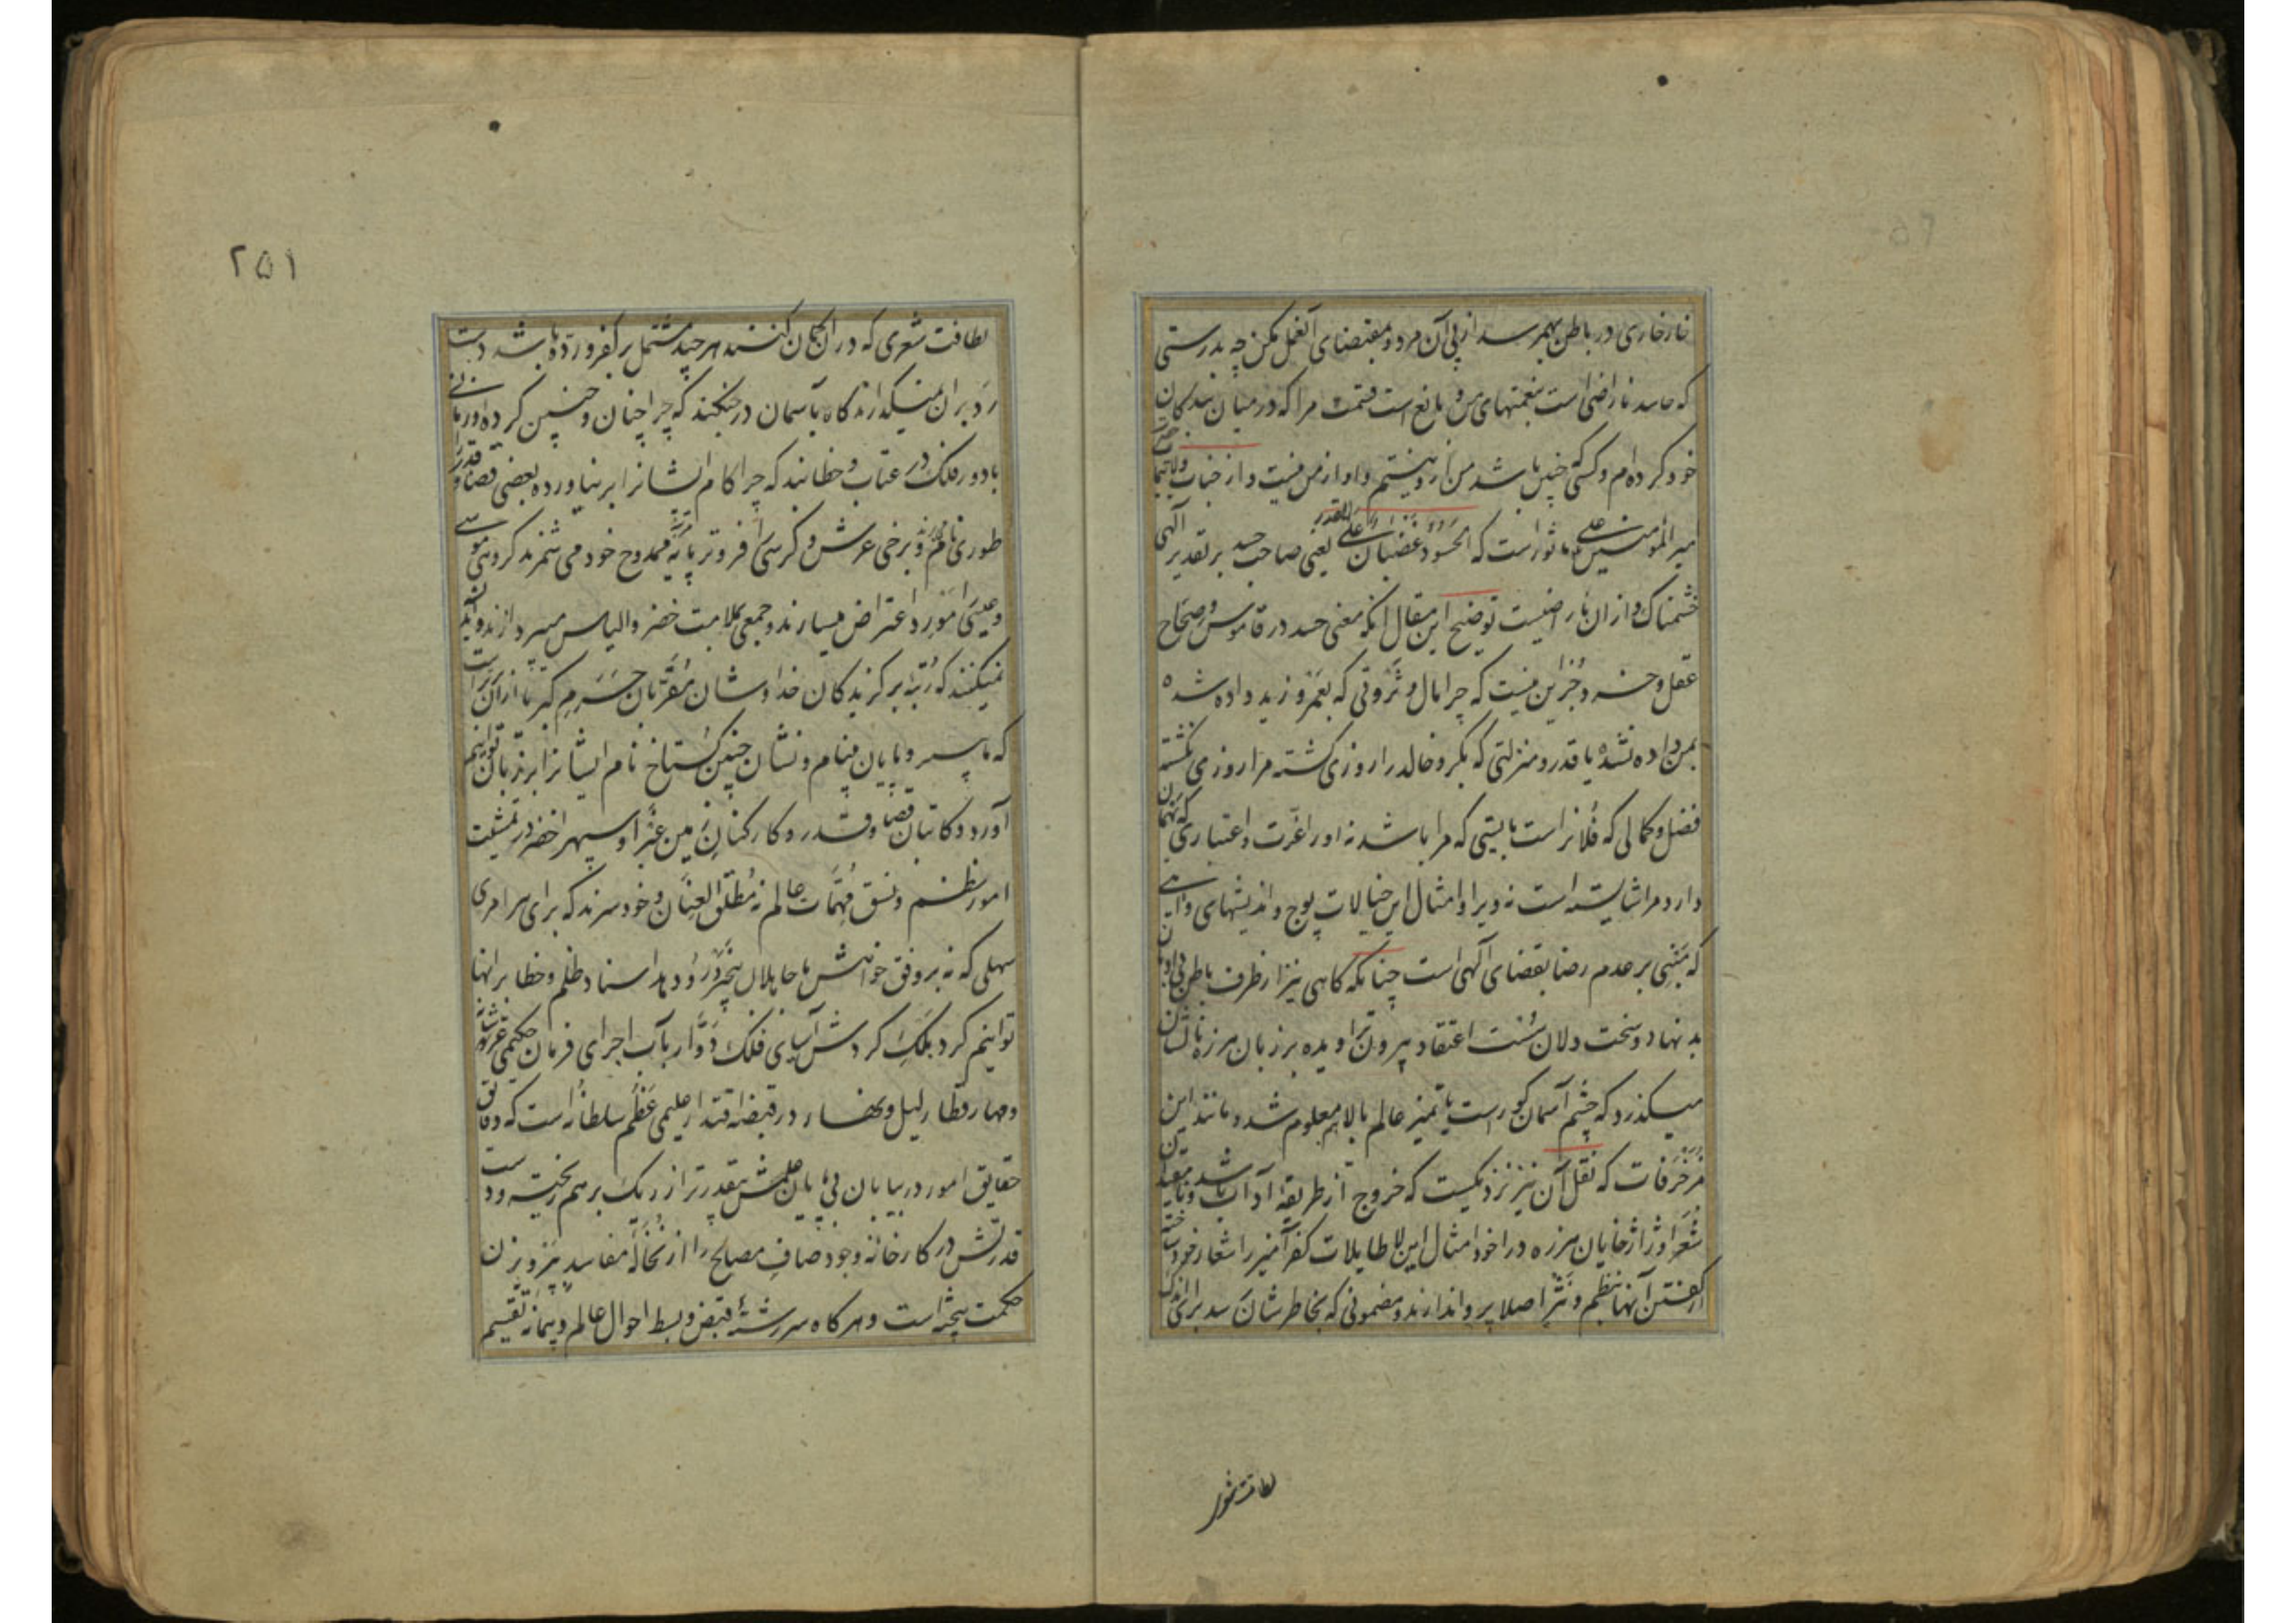 خار خاری در باطن بهمرسد از پی آن مرو و بمقتضای آن عمل مکن چه بدرستی
که حاسد ناراضی است بنعمتهای من و مانع است قسمت مرا که در میان بندکان
خود کرده‌ام و کسی که چنین باشد من از و نیستم و او از من نیست و از جناب ولایتمآب حضرت
امیر المومنین علی ماثور است که الحسود غضبان علی القدر یعنی صاحب حسد بر تقدیر الهی
خشمناک و از ان ناراضیست توضیح این مقال انکه معنی حسد در قاموس و صحاح
عقل و جز این نیست که چرا مال و ثروتی که بعمرو و زید داده شده
بمن داده نشده یا قدر و منزلتی که بکر و خالد را روزی کشته مرا روزی نکشته
فضل و کمالی که فلانراست بایستی که مرا باشد نه او را عزت و اعتباری که بهمان
دارد مرا شایسته است نه ویرا و امثال این خیالات پوج و اندیشهای واهی
که مبنی بر عدم رضا بقضای الهی است چنانکه کاهی نیز از ظرف باطن بی ادبان
بد نهاد و سخت دلان سست اعتقاد بیرون تراویده بر زبان هرزه نالشان
میکذرد که چشم آسمان کور است یا تمیز عالم بالا هم معلوم شد و مانند این
مزخرفات که نقل آن نیز نزدیکست که خروج از طریقه آداب باشد
شعرا و ژاژخایان هرزه درا خود امثال این لاطایلات کفر آمیز را شعار خود ساخته
از کفتن آنها بنظم و نثر اصلا پروا ندارند و مضمونی که بخاطرشان رسد برای اندک
لطافت شعری
۲۵۱
لطافت شعری که در ان کمان کنند هر چند مشتمل بر کفر و رده باشد دست
رد بر ان نمیکذارند کاه بآسمان در جنکند که چرا چنان و چنین کرده و زمانی
با دور فلک در عتاب و خطابند که چرا کام ایشانرا بر نیاورده بعضی قضا و قدر را
طوری نام و برخی عرش و کرسی را فروتر پایه ممدوح خود می شمرند کروهی موسی
و عیسی را مورد اعتراض میسازند و جمعی بملامت خضر و الیاس میپردازند و اندیشه
نمیکنند که رتبه برکزیدکان خدا و شان مقربان حرم کبریا از آن برتر است
که ما بی سر و پایان بینام و نشان چنین کستاخ نام ایشانرا بر زبان توانیم
آورد و کاتبان قضا و قدر و کارکنان زمین غبرا و سپهر اخضر در تمشیت
امور نظم و نسق مهمات عالم نه مطلق العنان و خود سرند که برای هر امری
سهلی که نه بر وفق خواهش ما جاهلان بیخبر رو دهد اسناد ظلم و خطا بر انها
توانیم کرد بلکه کردش آسیای فلک دوار بآب اجرای فرمان حکیمی عز شانه
و مهار قطار لیل و نهار در قبضه اقتدار علیمی عظم سلطانه است که دقایق
حقایق امور در بیابان بی پایان علمش بیقدرتر از ریک بر هم ریخته و دست
قدرتش در کارخانه وجود صاف مصالح را از نخاله مفاسد بپرویزن
حکمت بیخته است و هر کاه سررشته قبض و بسط احوال عالم و پیمانه تقسیم